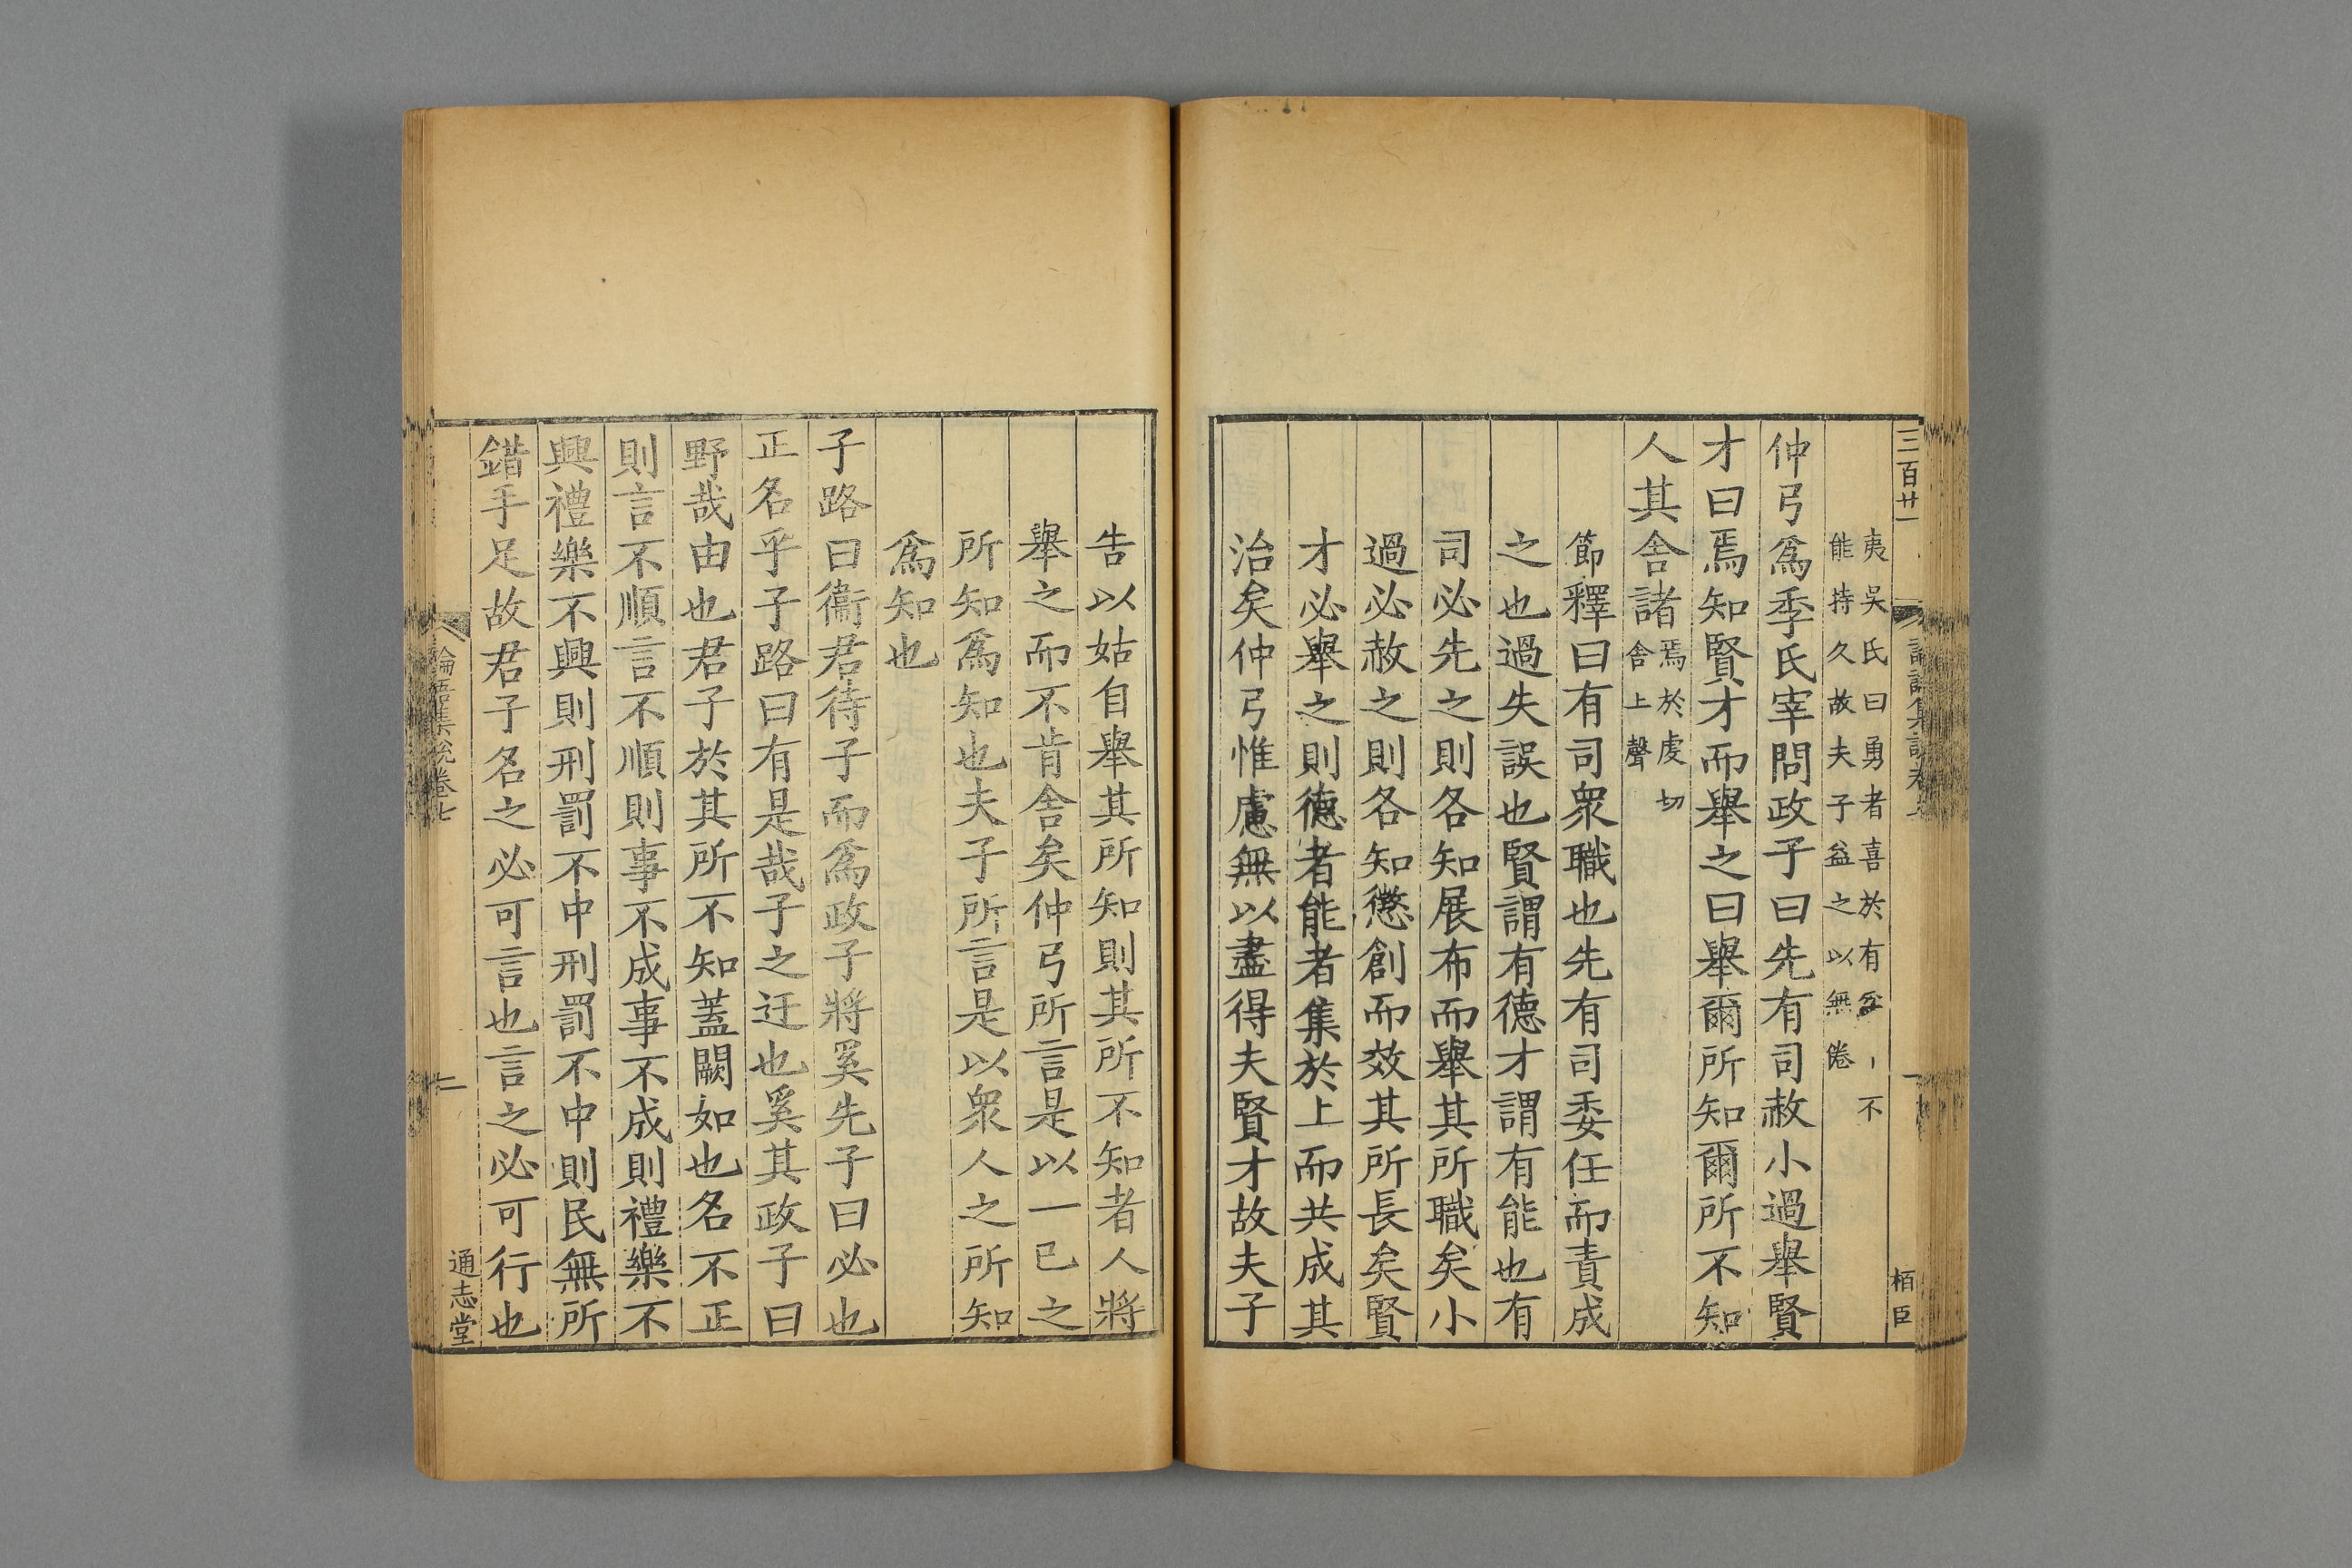 三百廿一
栢臣
夷吳氏曰勇者喜於有爲而不
能持久故夫子益之以無倦
仲弓爲季氏宰問政子曰先有司赦小過舉賢
才曰焉知賢才而舉之曰舉爾所知爾所不知
人其舍諸焉於虔切
舍上聲
節釋曰有司衆職也先有司委任而責成
之也過失誤也賢謂有德才謂有能也有
司必先之則各知展布而舉其所職矣小
過必赦之則各知懲創而效其所長矣賢
才必舉之則德者能者集於上而共成其
治矣仲弓惟慮無以盡得夫賢才故夫子
告以姑自舉其所知則其所不知者人將
舉之而不肯舍矣仲弓所言是以一已之
所知爲知也夫子所言是以衆人之所知
爲知也
子路曰衞君待子而爲政子將奚先子曰必也
正名乎子路曰有是哉子之迂也奚其政子曰
野哉由也君子於其所不知蓋闕如也名不正
則言不順言不順則事不成事不成則禮樂不
興禮樂不興則刑罰不中刑罰不中則民無所
錯手足故君子名之必可言也言之必可行也
論語集說卷七
二
通志堂